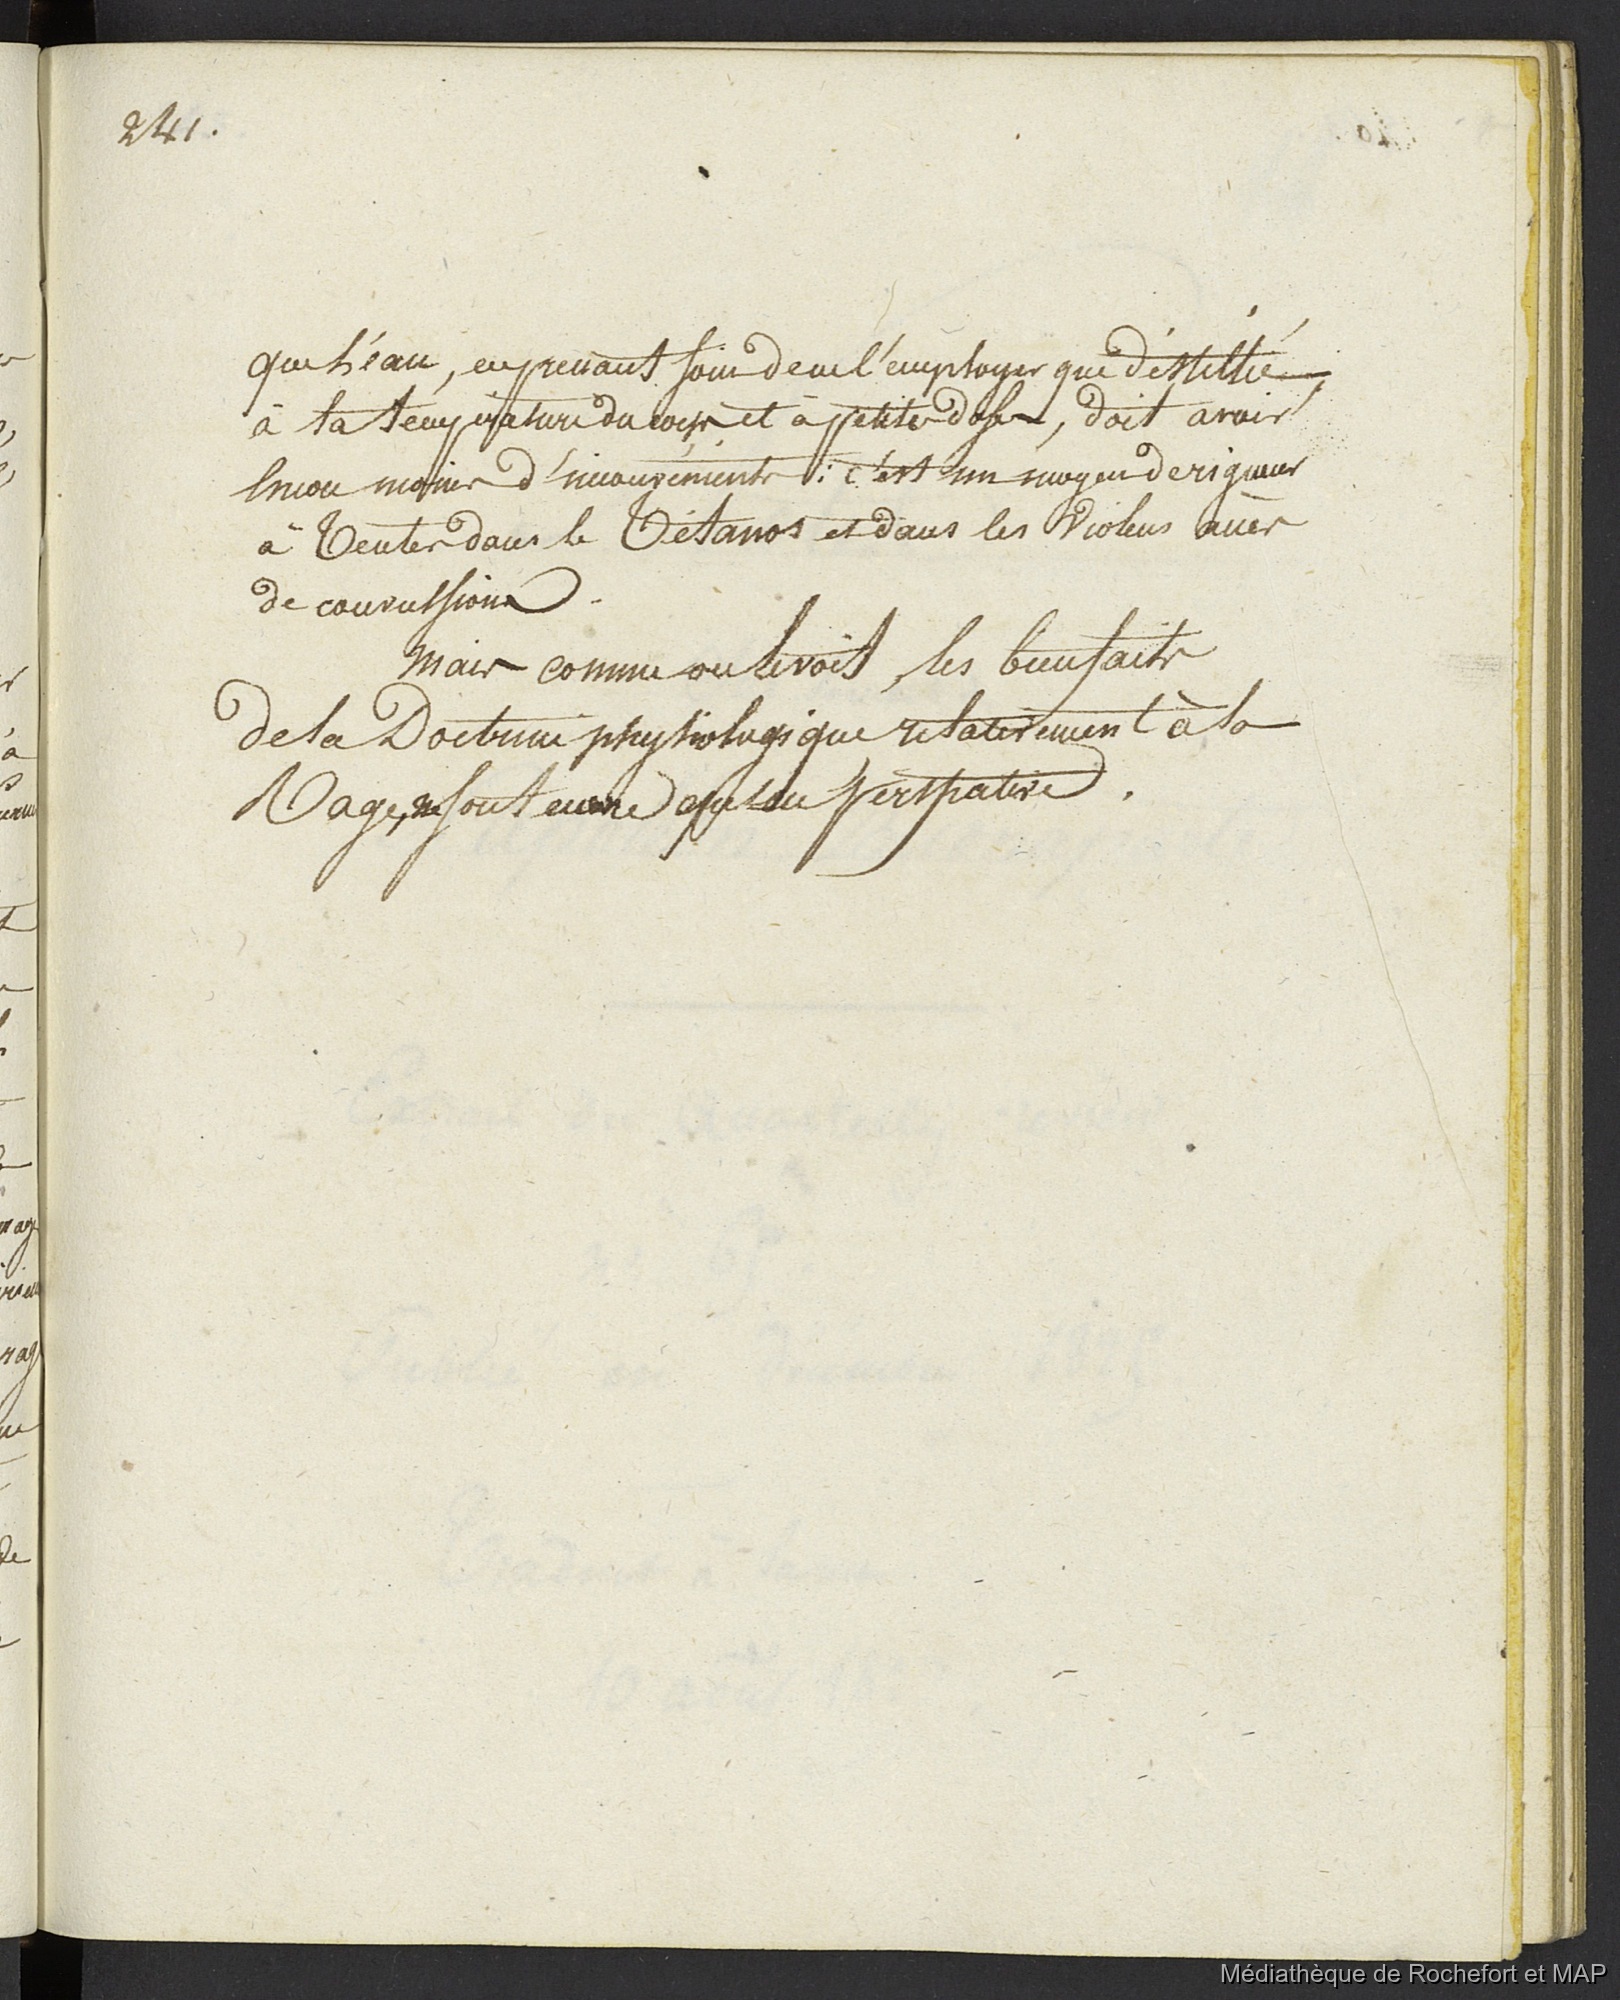 241.
que l'éau, en prenant soin de ne l'employer que déstillée,
à la température du corps et à petites doses, doit avoir
bien moins d'inconvénients : c'est un moyen de rigueur
à Tenter dans le Tétanos et dans les Violens accès
de convulsions.
Mais comme on le voit, les bienfaits
de la Doctrine physiologique relativement à la
Rage, ne sont encore qu'en perspective.
Médiathèque de Rochefort et MAP